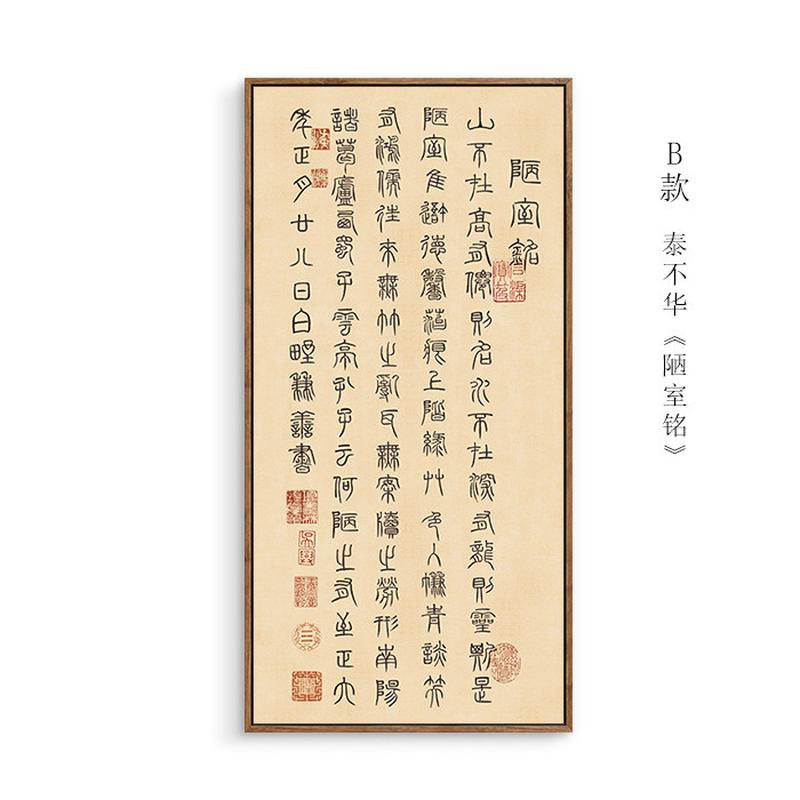 B款 泰不华《陋室铭》
陋室銘
山不在高有僊則名水不在深有龍則靈斯是
陋室隹吾德馨苔痕上階綠艸色入簾青談笑
有鴻儒往來無竹之亂耳無案牘之勞形南陽
諸葛廬西蜀子雲亭孔子云何陋之有至正六
年正月廿八日白野兼善書